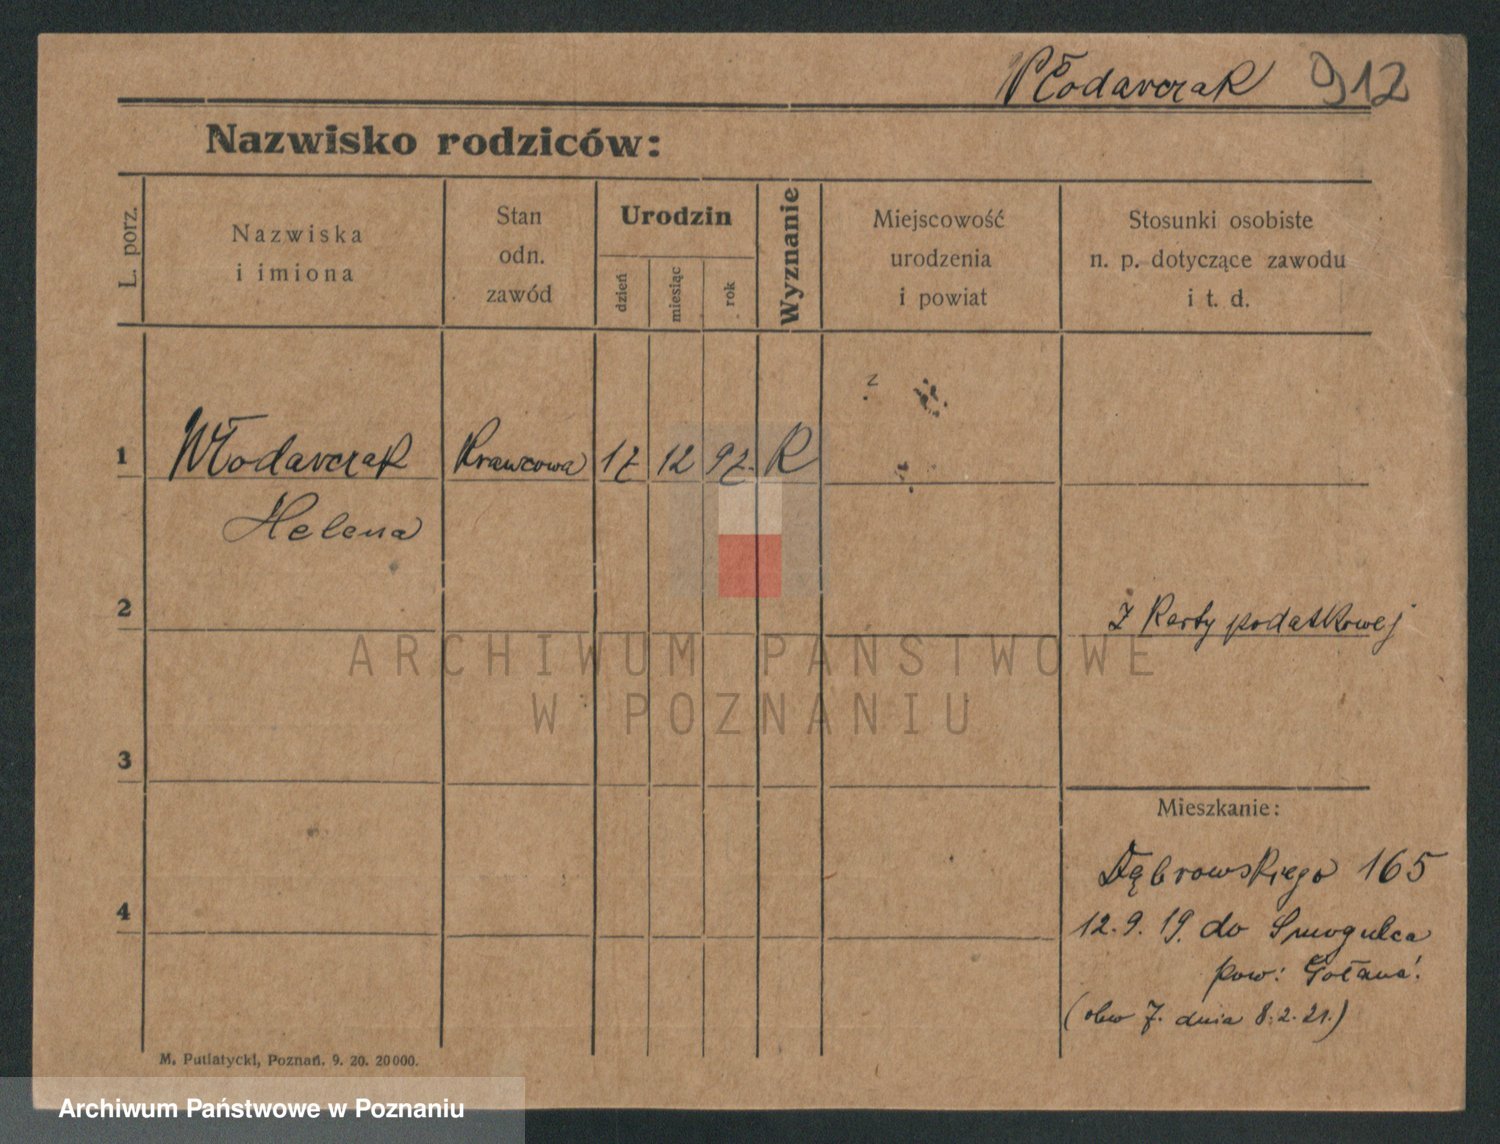 Włodarczak 912
Nazwisko rodziców:
L. porz.
Nazwiska
i imiona
Stan
odn.
zawód
Urodzin
dzień
miesiąc
rok
Wyznanie
Miejscowość
urodzenia
i powiat
Stosunki osobiste
n. p. dotyczące zawodu
i t. d.
1 Włodarczak Krawcowa 17 12 97. R
Helena
2
z Karty podatkowej
ARCHIWUM PAŃSTWOWE
W POZNANIU
3
Mieszkanie:
Dąbrowskiego 165
4
12.9.19. do Smogulca
pow: Gołańcz.
(obw 7. dnia 8.2.21.)
M. Putiatycki, Poznań. 9. 20. 20000.
Archiwum Państwowe w Poznaniu